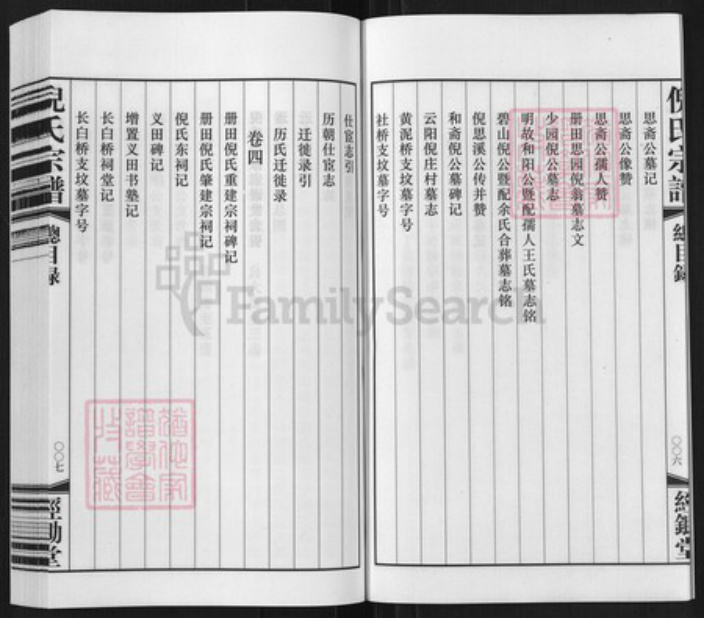 倪氏宗譜
總目錄
〇〇六
經鋤堂
思斋公墓记
思斋公像赞
思斋公孺人赞
册田思园倪翁墓志文
少园倪公墓志
明故和阳公暨配孺人王氏墓志铭
碧山倪公暨配余氏合葬墓志铭
倪思溪公传并赞
和斋倪公墓碑记
云阳倪庄村墓志
黄泥桥支坟墓字号
社桥支坟墓字号
仕宦志引
历朝仕宦志
迁徙录引
历氏迁徙录
卷四
册田倪氏重建宗祠碑记
册田倪氏肇建宗祠记
倪氏东祠记
义田碑记
增置义田书塾记
长白桥祠堂记
长白桥支坟墓字号
倪氏宗譜
總目録
〇〇七
經鋤堂
FamilySearch